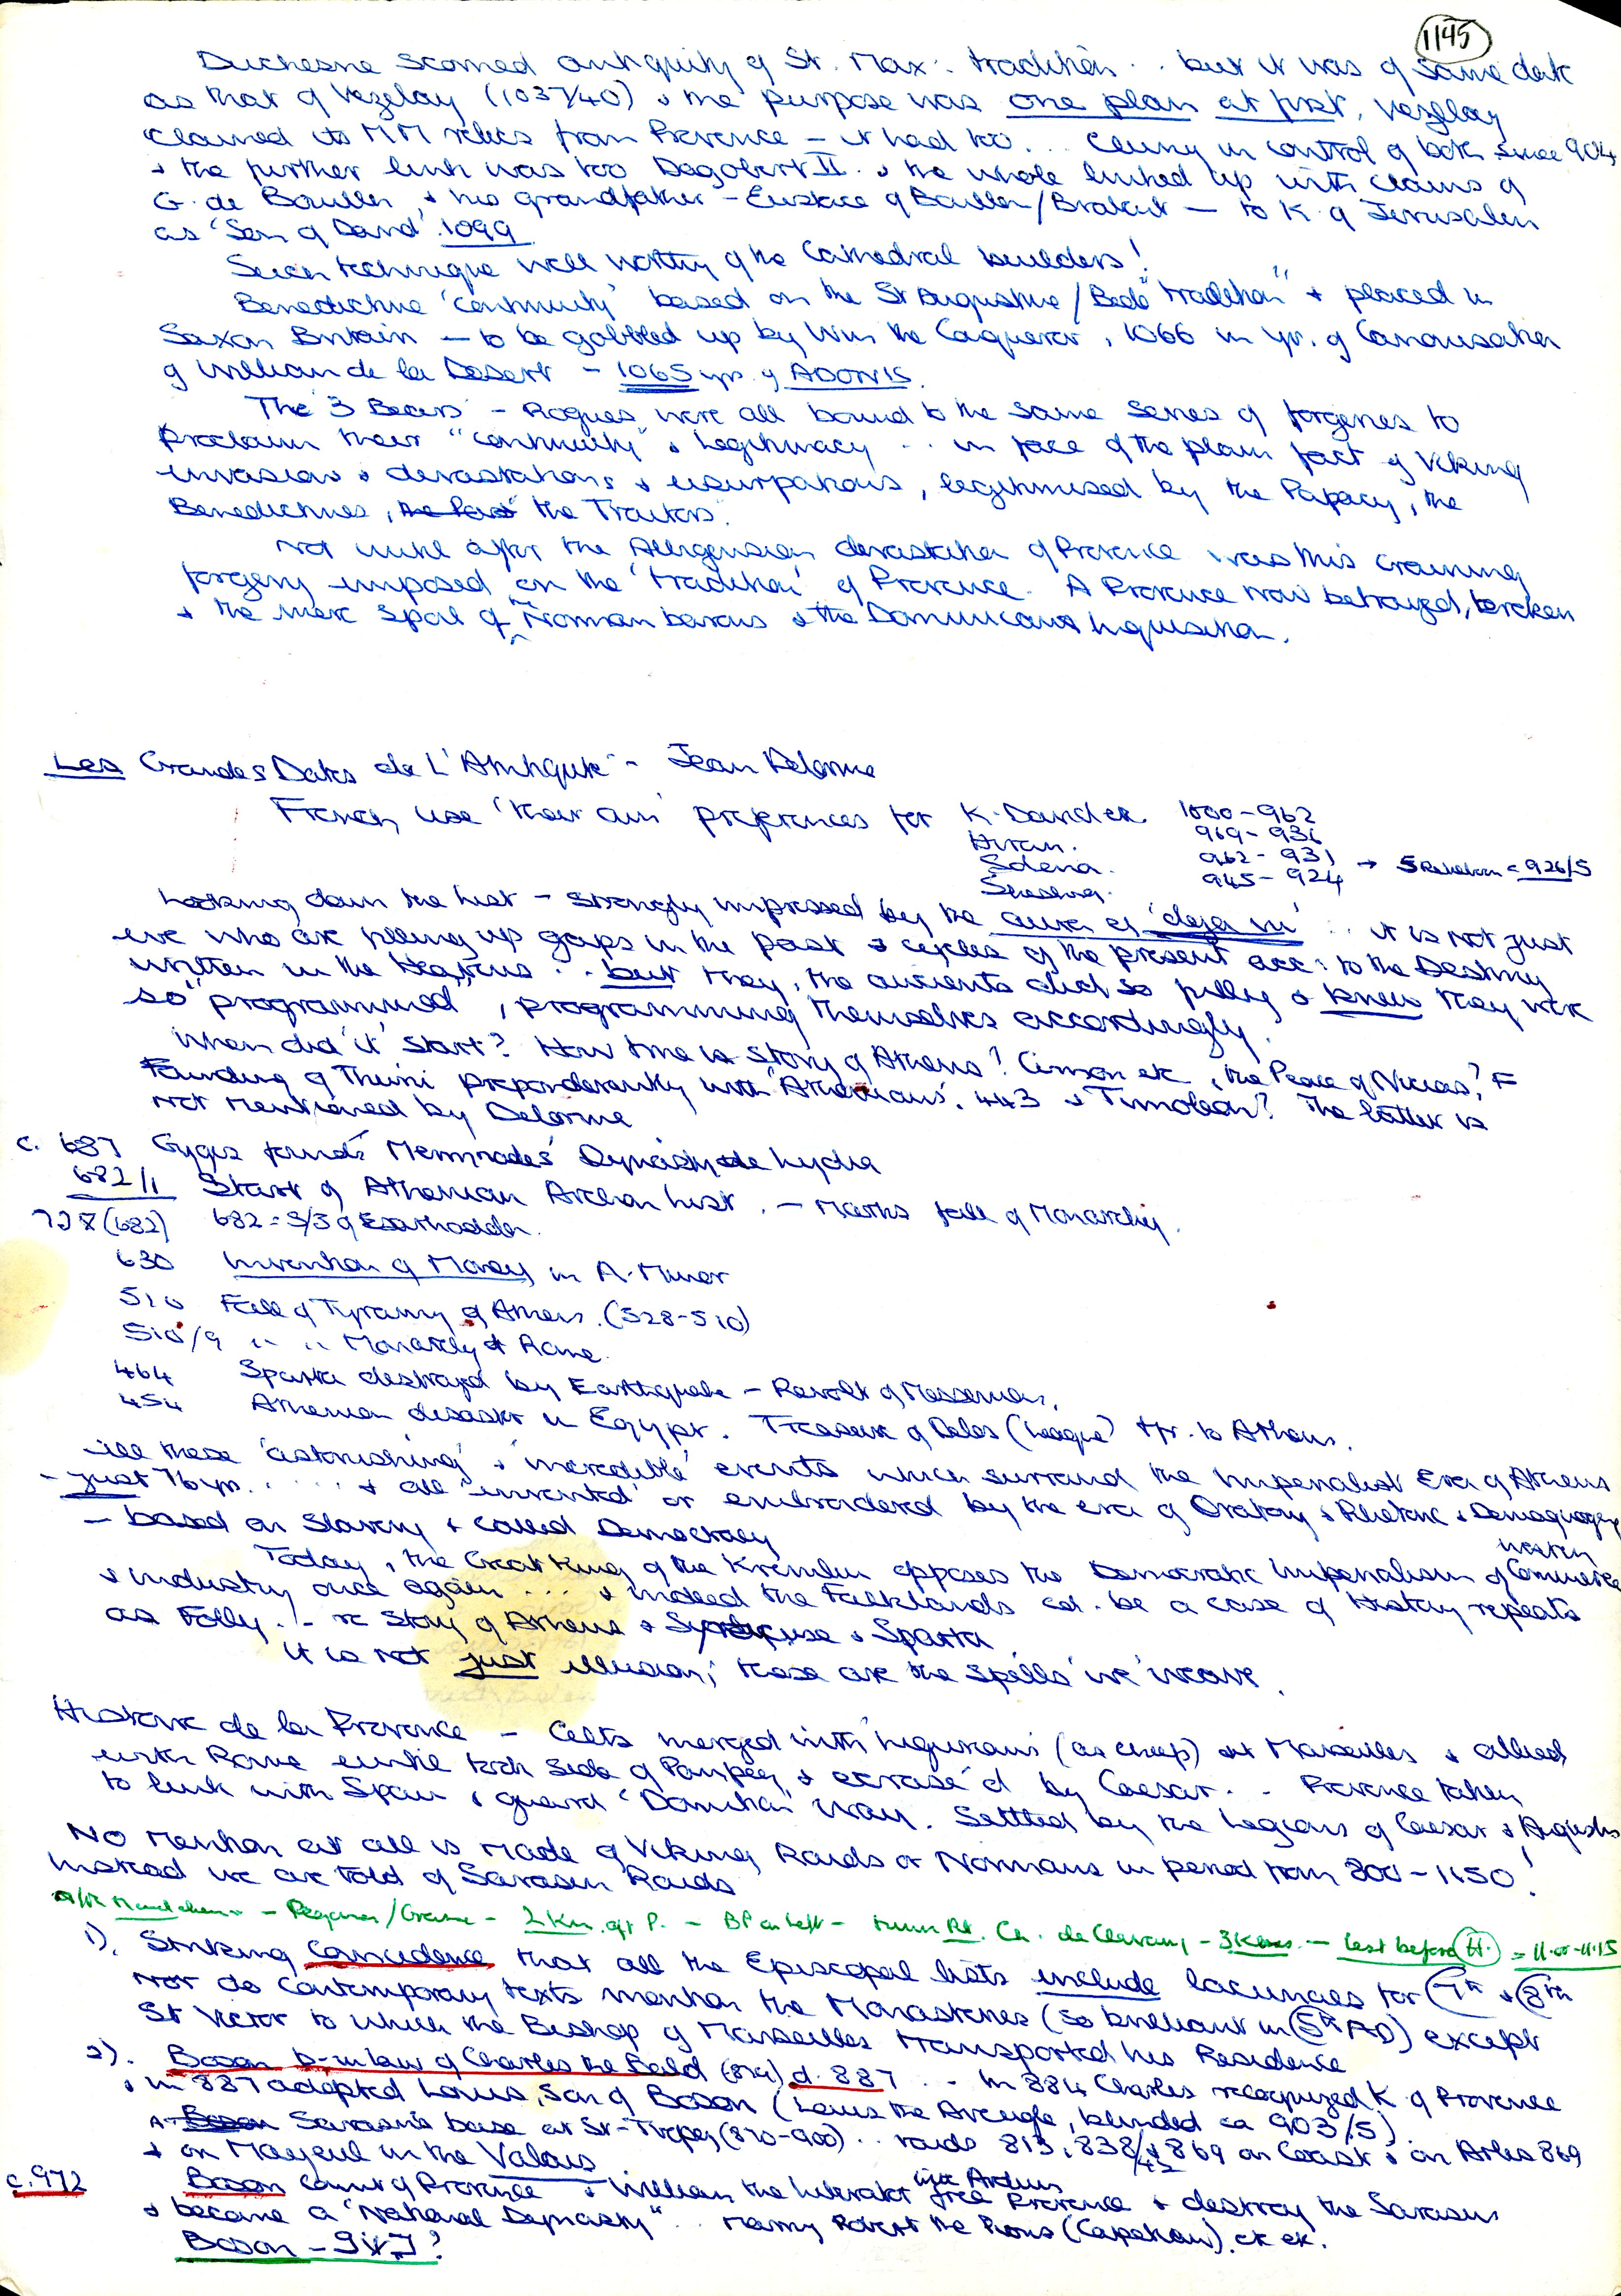 1145
Duchesne scorned antiquity of St. Max. tradition .. but it was of same date
as that of Vezelay (1037/40) & the purpose was one plan at first, Vezelay
claimed its MM relics from Provence – it had too... Cluny in control of both since 904
& the further link was too Dagobert II. & the whole linked up with claims of
G. de Bouillon & his grandfather – Eustace of Boullon/Brabant – to K. of Jerusalem
as 'Son of David' 1099
Such technique well worthy of the Cathedral builders!
Benedictine 'continuity' based on the St Augustine/Bede "tradition" & placed in
Saxon Britain – to be gobbled up by Wm the Conqueror, 1066 in yr. of Canonisation
of William de la Desert – 1065 yr. of ADONIS.
The '3 Bears' – Rogues were all bound to the same series of forgeries to
proclaim their "continuity" & legitimacy .. in face of the plain fact of Viking
invasions & devastations & usurpations, legitimised by the Papacy, the
Benedictines, the Traitors.
Not until after the Albigensian devastation of Provence was this crowning
forgery imposed on the 'tradition' of Provence. A Provence now betrayed, broken
& the mere spoil of Norman barons & the Dominican Inquisition.
Les Grandes Dates de L'Antiquité – Jean Delorme
French use 'their own' preferences for K. David etc. 1000–962
Hiram. 969–936
962–931 → = 926/5
945–924
Looking down the list – strongly impressed by the 'deja vu' .. it is not just
we who are filling up gaps in the past & cycles of the present acc: to the Destiny
written in the Heavens ... but they, the ancients did so fully & knew they were
so "programmed", programming themselves accordingly.
When did 'it' start? How time is Story of Athens? Cimon etc, the Peace of Nicias? F
Founding of Thurii preponderantly with 'Athenians'. 443 & Timoleon? The latter is
not mentioned by Delorme
c. 687 Gyges founds Mermnades Dynasty Lydia
682/1 Start of Athenian Archon list. – Marks fall of Monarchy.
(682) 682 = of Esarhaddon.
630 Invention of Money in A. Minor
510 Fall of Tyranny of Athens. (528–510)
510/9 " " Monarchy of Rome.
464 Sparta destroyed by Earthquake – Revolt of Messenians.
454 Athenian disaster in Egypt. Treasure of Delos (League) tfr. to Athens.
All these 'astonishing' & 'incredible' events which surround the Imperialist Era of Athens
– just 76 yrs. .... & all 'invented' or embroidered by the era of Oratory & Rhetoric & Demagoguery
– based on Slavery & called Democracy
Today, the Great King of the Kremlin opposes the Democratic Imperialism of Western Commerce
& industry once again ... & indeed the Falklands cd. be a case of History repeats
as Folly. – re Story of Athens & Syracuse & Sparta
It is not just illusion; these are the spells we weave.
Histoire de la Provence – Celts merged with Ligurians (as cheap) at Marseilles & allied
with Rome until took side of Pompey & excuse'd by Caesar. . Provence taken
to link with Spain & guard 'Domitian' Way. Settled by the Legions of Caesar & Augustus
No mention at all is made of Viking Raids or Normans in period from 800–1150!
Instead we are told of Sarasin Raids
– Pegomas/Grasse – 2 Km. aft P. – BP on left – turn Rt. Ch. de – 3 Kms – last before (H.) = 11.00–11.15
1). Striking coincidence that all the Episcopal lists include lacunaes for 7th & 8th
Nor do contemporary texts mention the Monasteries (so brilliant in 5th AD) except
St Victor to which the Bishop of Marseilles transported his Residence
2). Boson b-in law of Charles the Bald (879) d. 887 .. In 884 Charles recognized K. of Provence
& in 887 adopted Louis, son of Boson (Louis the Aveugle, blinded ca 903/5)
A Sarasins base at St-Tropez (890–900) .. raids 813, 838/42 & 869 on Coast & on Arles 869
& on Mayeul in the Valais
c. 972 Boson Count of Provence & William the Liberator with Arduin free Provence & destroy the Sarasins
& became a "National Dynasty" .. Marry Robert the Pious (Capetian). etc etc.
Boson –